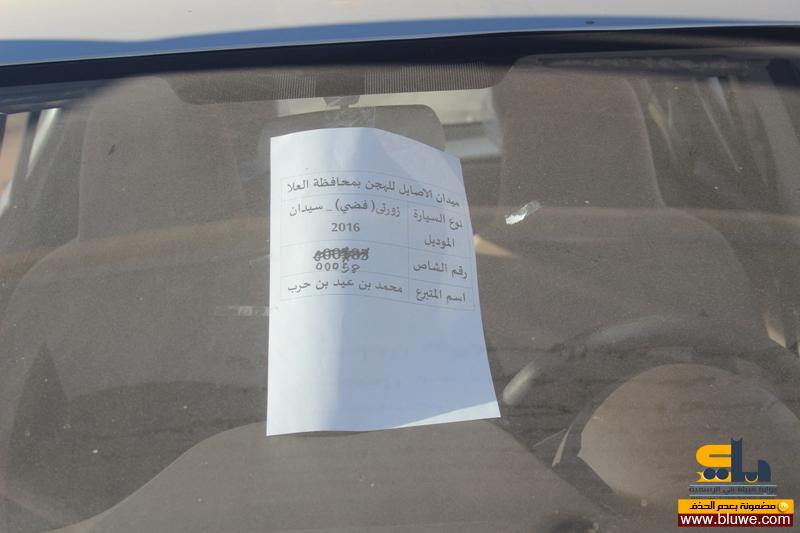 ميدان الاصايل للهجن بمحافظة العلا
نوع السيارة زورتى( فضي) _ سيدان
الموديل 2016
رقم الشاص 00058
اسم المتبرع محمد بن عيد بن حرب
بلي
بوابة قبيلة بلي الرسمية
مضمونة بعدم الحذف
www.bluwe.com